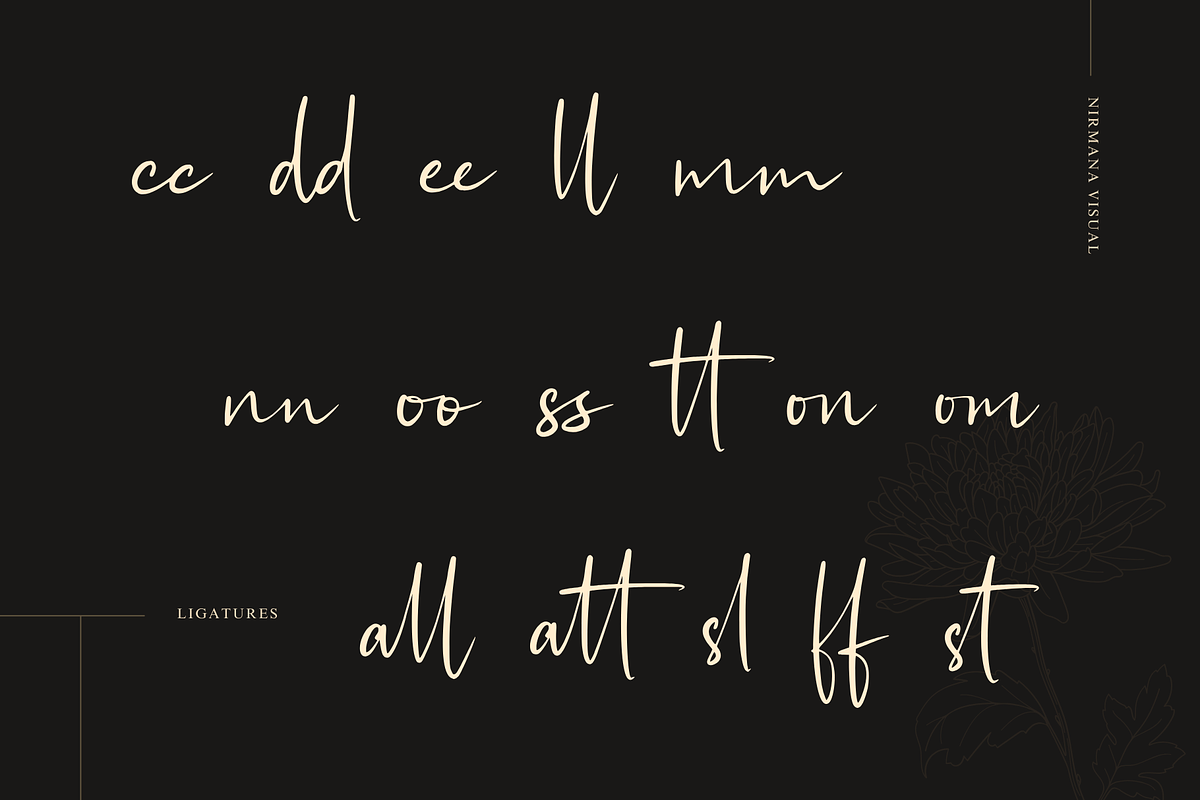 NIRMANA VISUAL
cc dd ee ll mm
nn oo ss tt on om
LIGATURES
all att sl ff st